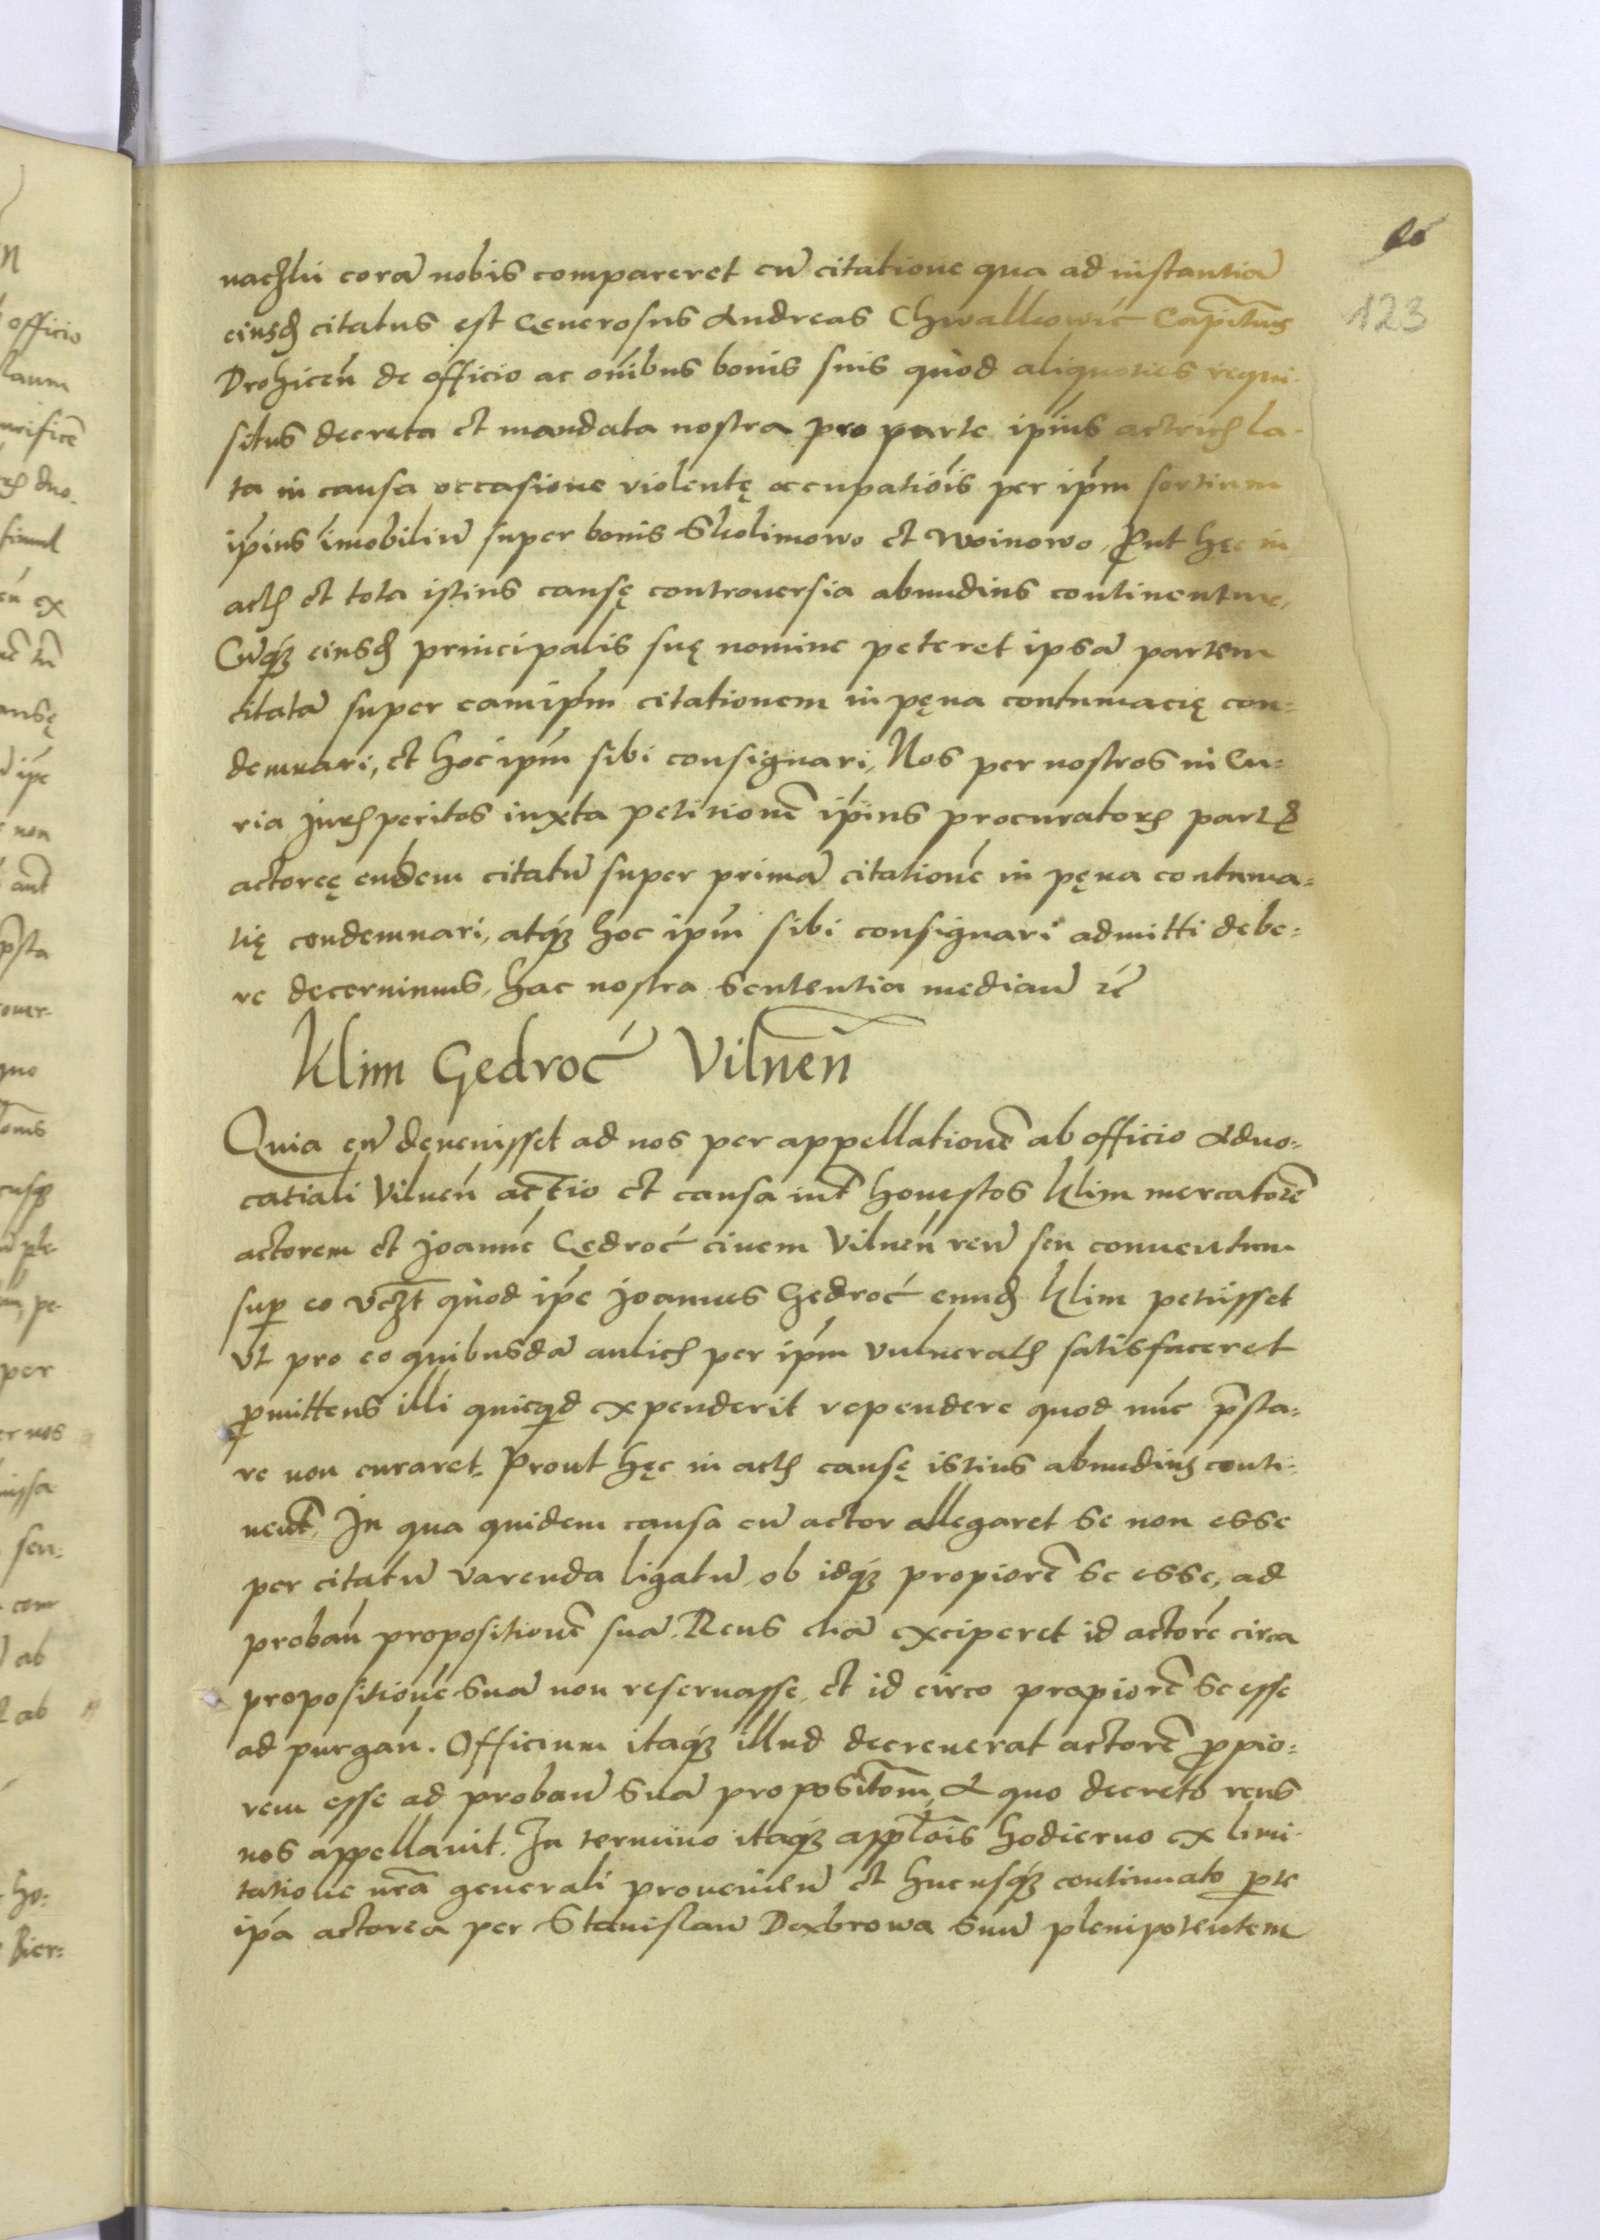 123
nachlii corã nobis compareret cũ citatione qua ad instantiã
eiusđ citatus est Generosus Andreas Chwalkowič Capitns
Drohiceñ de officio ac oñibus bonis suis quòd aliquoties requi-
situs decreta et mandata nostra pro parte ip̃ius actricis la-
ta in causa occasione violentę occupatiõis per ip̃m sortium
ip̃ius im̃obiliũ super bonis Skolimowo et Woinowo, Put hęc in
actis et tota istius causę controuersia abundius continentur,
Cũq; eiusđ principalis suę nomine peteret ipsã partem
citatã super eamip̃m citationem in pęna contumacię con-
demnari, et hoc ip̃m sibi consignari, Nos per nostros in Cu-
ria Jurisperitos iuxta petitionẽ ip̃ius procuratoris partis
actoreę eundem citatũ super primã citationẽ in pęna contuma-
tię condemnari, atq; hoc ip̃m sibi consignari admitti debe-
re decernimus, hac nostra sententia median̄ r̃c
Klim Gedroć Vilneñ
Quia cũ deuenisset ad nos per appellationẽ ab officio Aduo-
catiali Vilneñ actio et causa int̃ honestos Klim mercatorẽ
actorem et Joannẽ Gedroć ciuem Vilneñ reũ seu conuentum
sup eo vcz̃t quòd ip̃e Joannes Gedroć eunđ Klim petiisset
vt pro eo quibusdã aulicis per ip̃m vulneratis satisfaceret
p̱mittens illi quicqđ expenderit rependere quod nũc p̃sta-
re non curaret, Prout hęc in actis causę istius abundius conti-
nent̃, In qua quidem causa cũ actor allegaret se non esse
per citatũ varenda ligatũ, ob idq; propiorẽ se esse, ad
proban̄ propositionẽ suã, Reus etiã exciperet id actorẽ circa
propositionẽ suã non reseruasse, et id circo propiorẽ se esse
ad purgan̄. Officium itaq; illud decreuerat actorẽ p̱pio-
rem esse ad proban̄ suã proposit̃om, A quo decreto reus
nos appellauit. In termino itaq; appl̃ois hodierno ex limi-
tatione nr̃a generali prouenien̄ et hucusq; continuato p̱te
ip̃a actorea per Stanislaũ Daxbrowa suũ plenipotentem